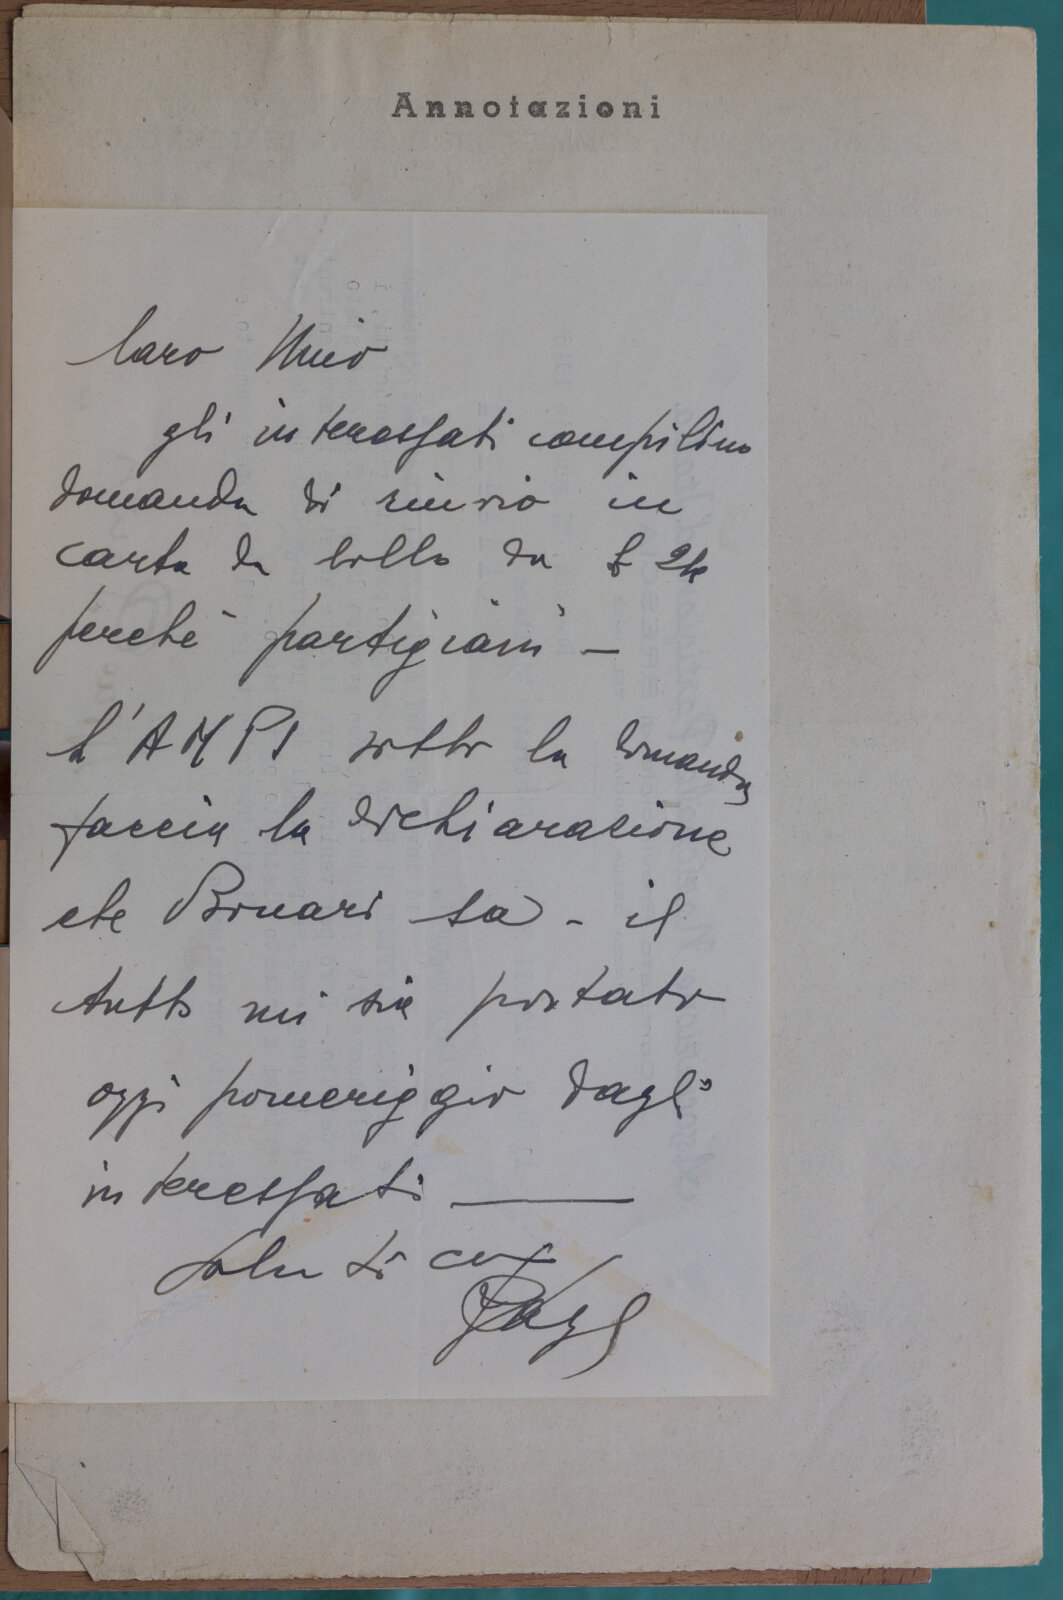 Annotazioni
Caro Nino
gli interessati compilino
domanda di rinvio in
carta da bollo da £ 24
perché partigiani —
L'ANPI sotto la domanda
faccia la dichiarazione
che Bonari sa - il
tutto mi sia portato
oggi pomeriggio dagli
interessati —
Saluti